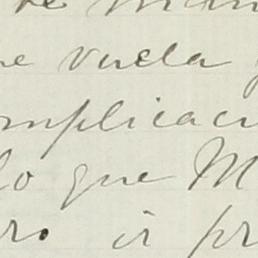 de man
e vuela
mplicaci
lo que M
ro ir pr